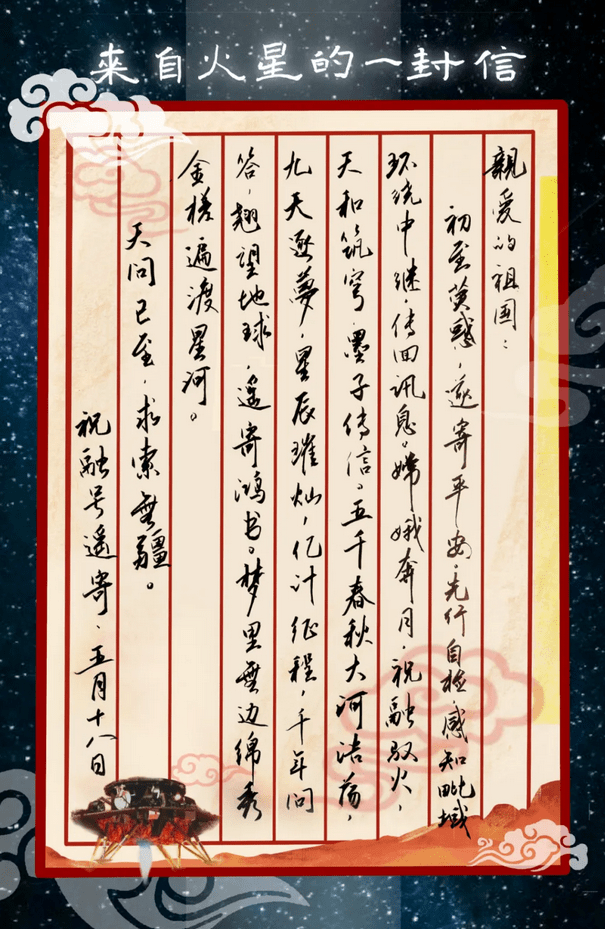 来自火星的一封信
親爱的祖国：
初至荧惑，遥寄平安。先行自检，感知毗域
环绕中继，传回讯息。嫦娥奔月，祝融驭火，
天和筑穹，墨子传信。五千春秋大河浩荡，
九天逐夢，星辰璀灿，亿计征程，千年问
答，翘望地球，遥寄鸿书。梦里无边绵秀
金槎遍渡星河。
天问已至，求索無疆。
祝融号遥寄、五月十八日